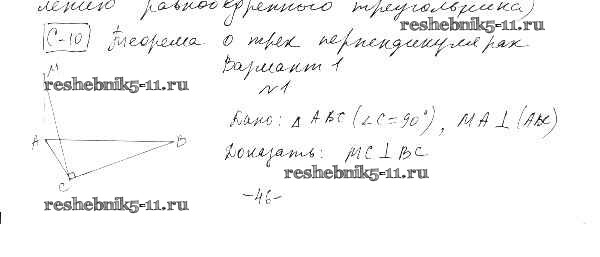 лению равнобедренного треугольника)
С-10 Теорема о трех перпендикулярах
reshebnik5-11.ru
Вариант 1
M
reshebnik5-11.ru
№1
Дано: △ ABC (∠C=90°), MA⊥(ABC)
A B
Доказать: MC⊥BC
reshebnik5-11.ru
C
-46-
reshebnik5-11.ru